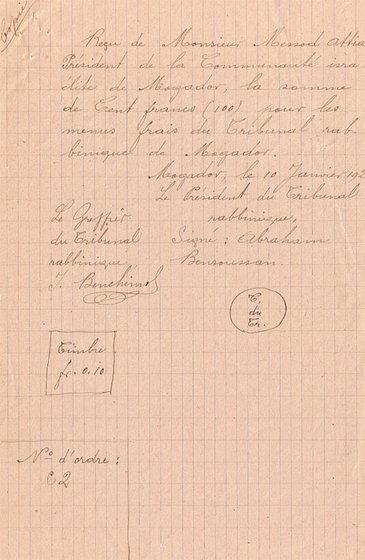 Copie
Reçu de Monsieur Messod Attia
Président de la Communauté isra
élite de Mogador, la somme
de Cent francs (100) pour les
menus frais du Tribunal rab-
binique de Mogador.
Mogador, le 10 Janvier 192
Le Président du Tribunal
rabbinique,
Signé : Abraham
Bensoussan
Le Greffier
du Tribunal
rabbinique,
J. Benchimol
C.
du
Tr.
Timbre
fr. 0.10
No d'ordre :
62